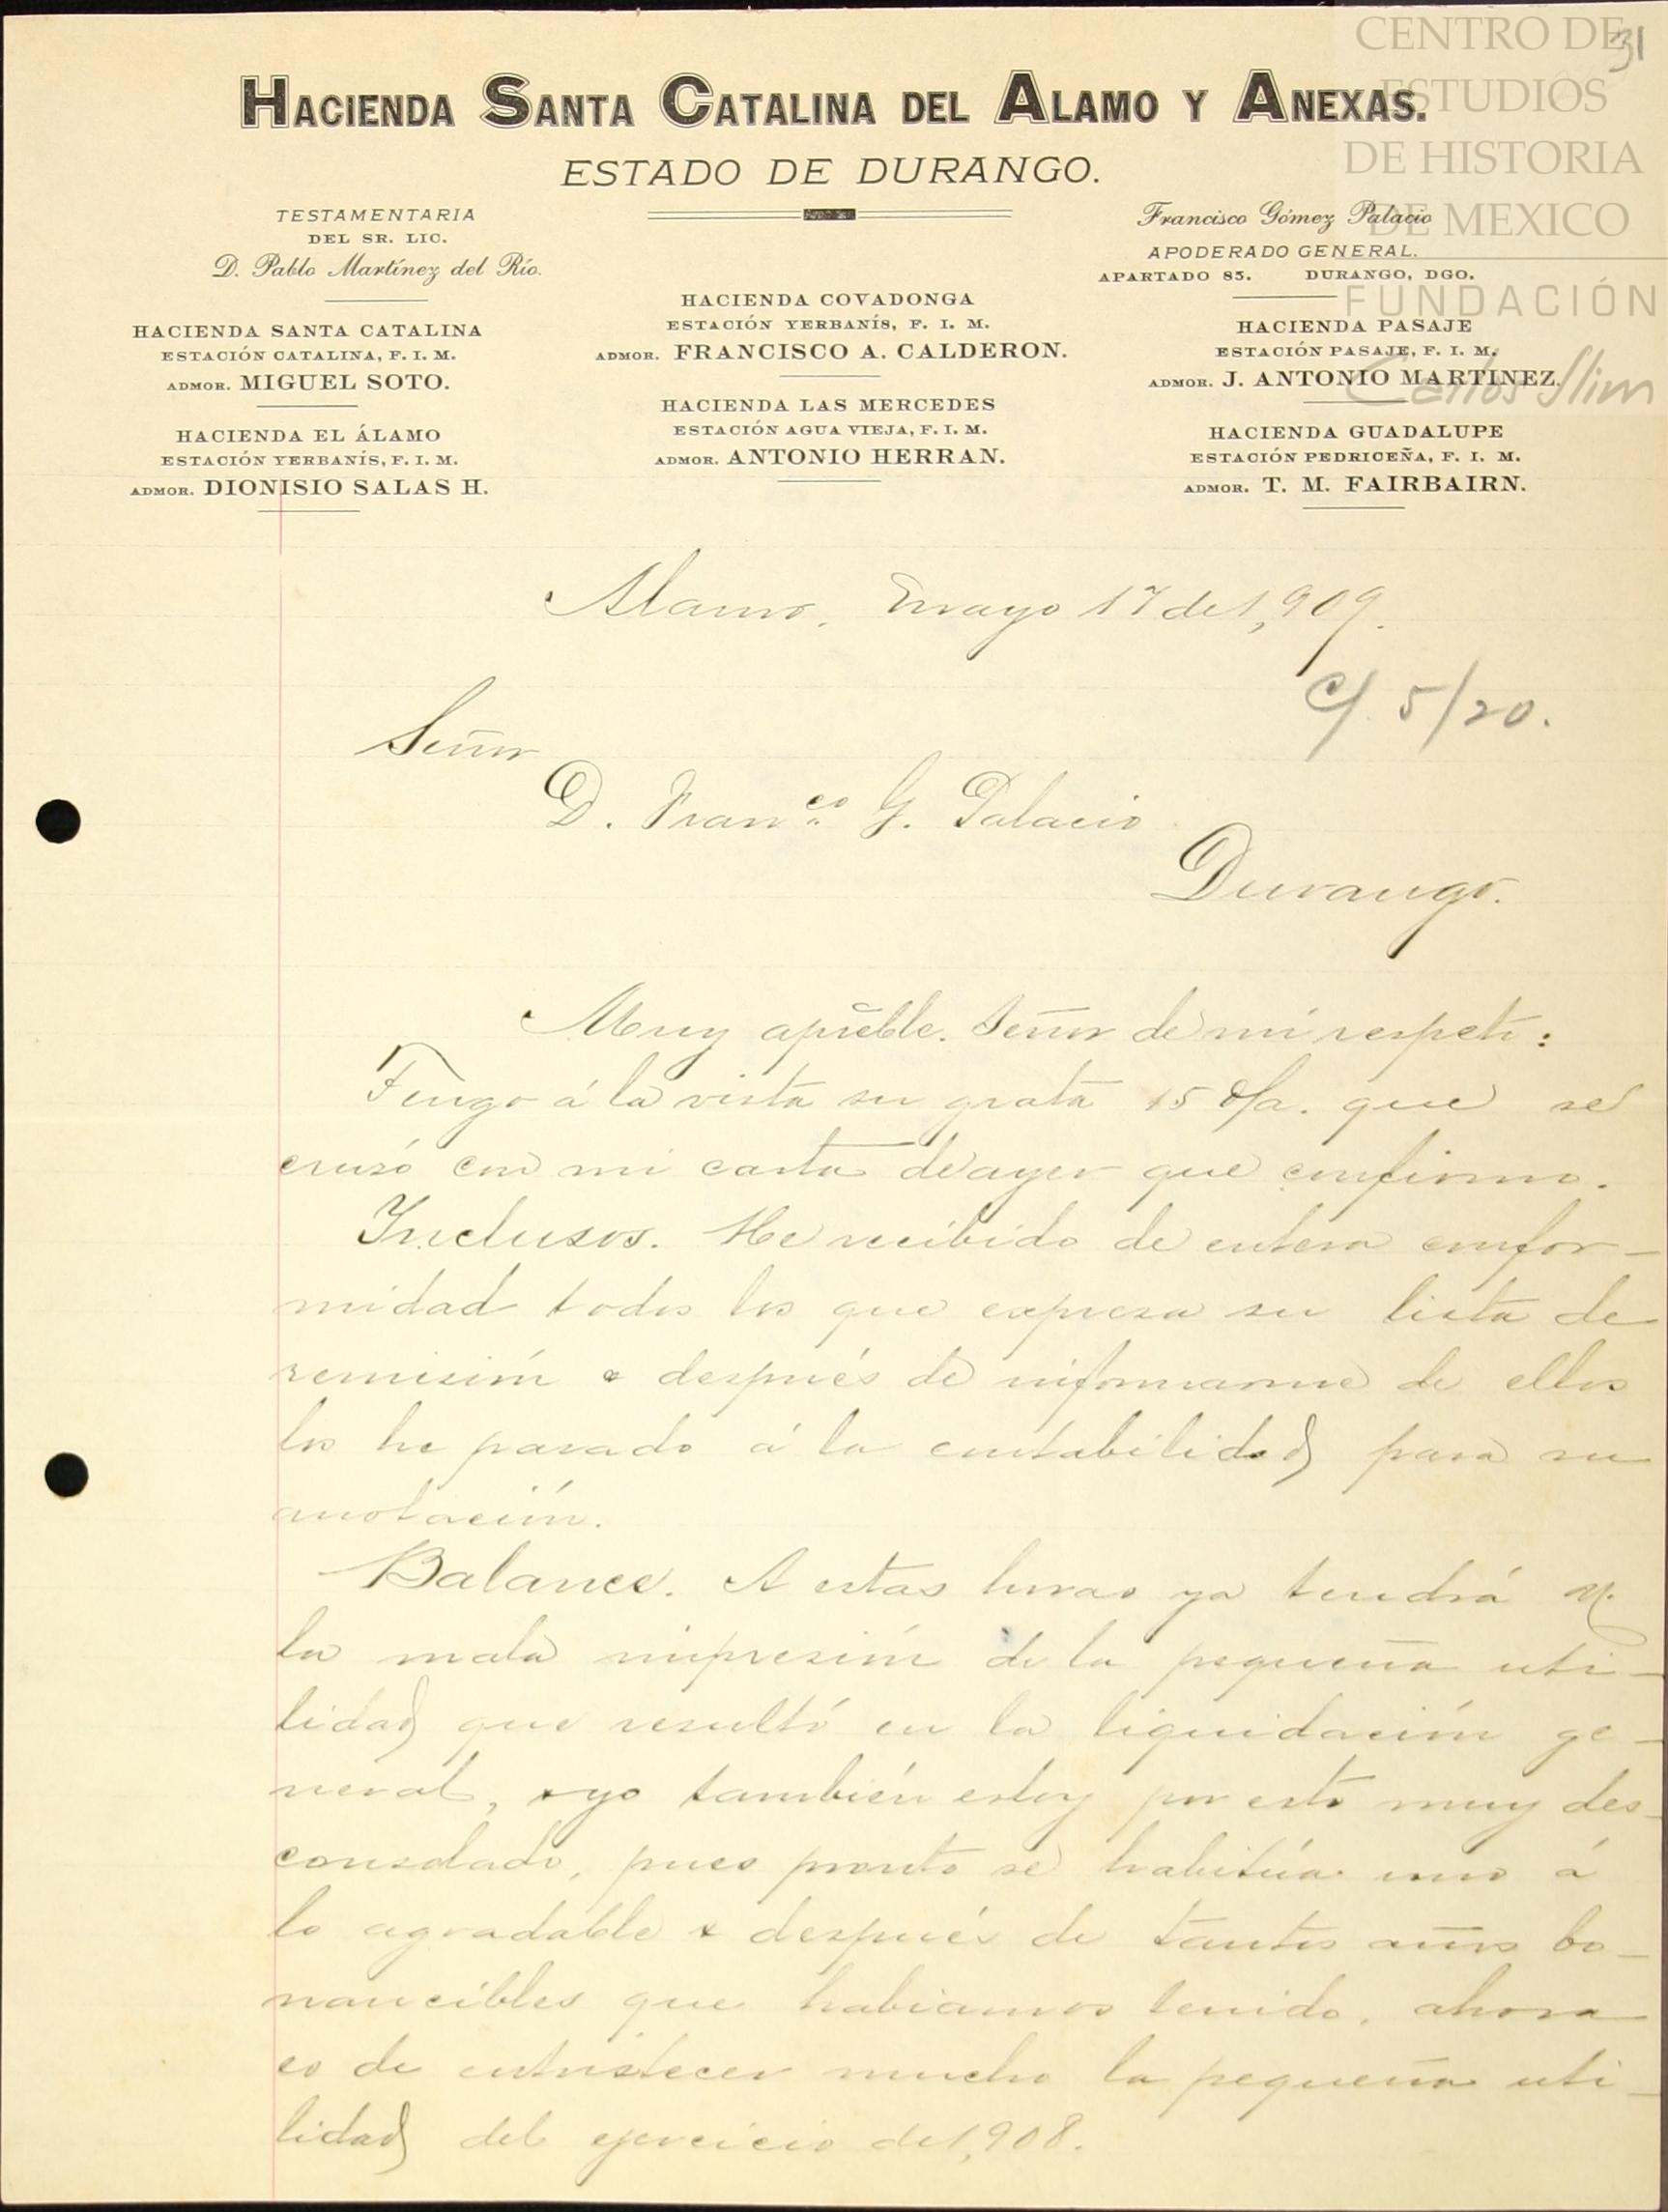 CENTRO DE
ESTUDIOS
DE HISTORIA
DE MEXICO
FUNDACIÓN
Carlos Slim
31
HACIENDA SANTA CATALINA DEL ALAMO Y ANEXAS.
ESTADO DE DURANGO.
TESTAMENTARIA
DEL SR. LIC.
D. Pablo Martínez del Río.
HACIENDA SANTA CATALINA
ESTACIÓN CATALINA, F. I. M.
ADMOR. MIGUEL SOTO.
HACIENDA EL ÁLAMO
ESTACIÓN YERBANÍS, F. I. M.
ADMOR. DIONISIO SALAS H.
HACIENDA COVADONGA
ESTACIÓN YERBANÍS, F. I. M.
ADMOR. FRANCISCO A. CALDERON.
HACIENDA LAS MERCEDES
ESTACIÓN AGUA VIEJA, F. I. M.
ADMOR. ANTONIO HERRAN.
Francisco Gómez Palacio
APODERADO GENERAL.
APARTADO 85. DURANGO, DGO.
HACIENDA PASAJE
ESTACIÓN PASAJE, F. I. M.
ADMOR. J. ANTONIO MARTINEZ.
HACIENDA GUADALUPE
ESTACIÓN PEDRICEÑA, F. I. M.
ADMOR. T. M. FAIRBAIRN.
Alamo, Mayo 17 de 1,909.
C/ 5/20.
Señor
D. Franco G. Palacio
Durango.
Muy apreble. Señor de mi respeto:
Tengo á la vista su grata 15 d/a. que se
crusó con mi carta de ayer que confirmo.
Inclusos. He recibido de entera confor-
midad todos los que expresa su lista de
remisión & después de informarme de ellos
los he pasado á la contabilidad para su
anotación.
Balance. A estas horas ya tendrá U.
la mala impresión de la pequeña uti-
lidad que resultó en la liquidación ge-
neral, & yo también estoy por esto muy des-
consolado, pues pronto se habitúa uno á
lo agradable & después de tantos años bo-
nancibles que habiamos tenido, ahora
es de entristecer mucho la pequeña uti-
lidad del ejercicio de 1,908.